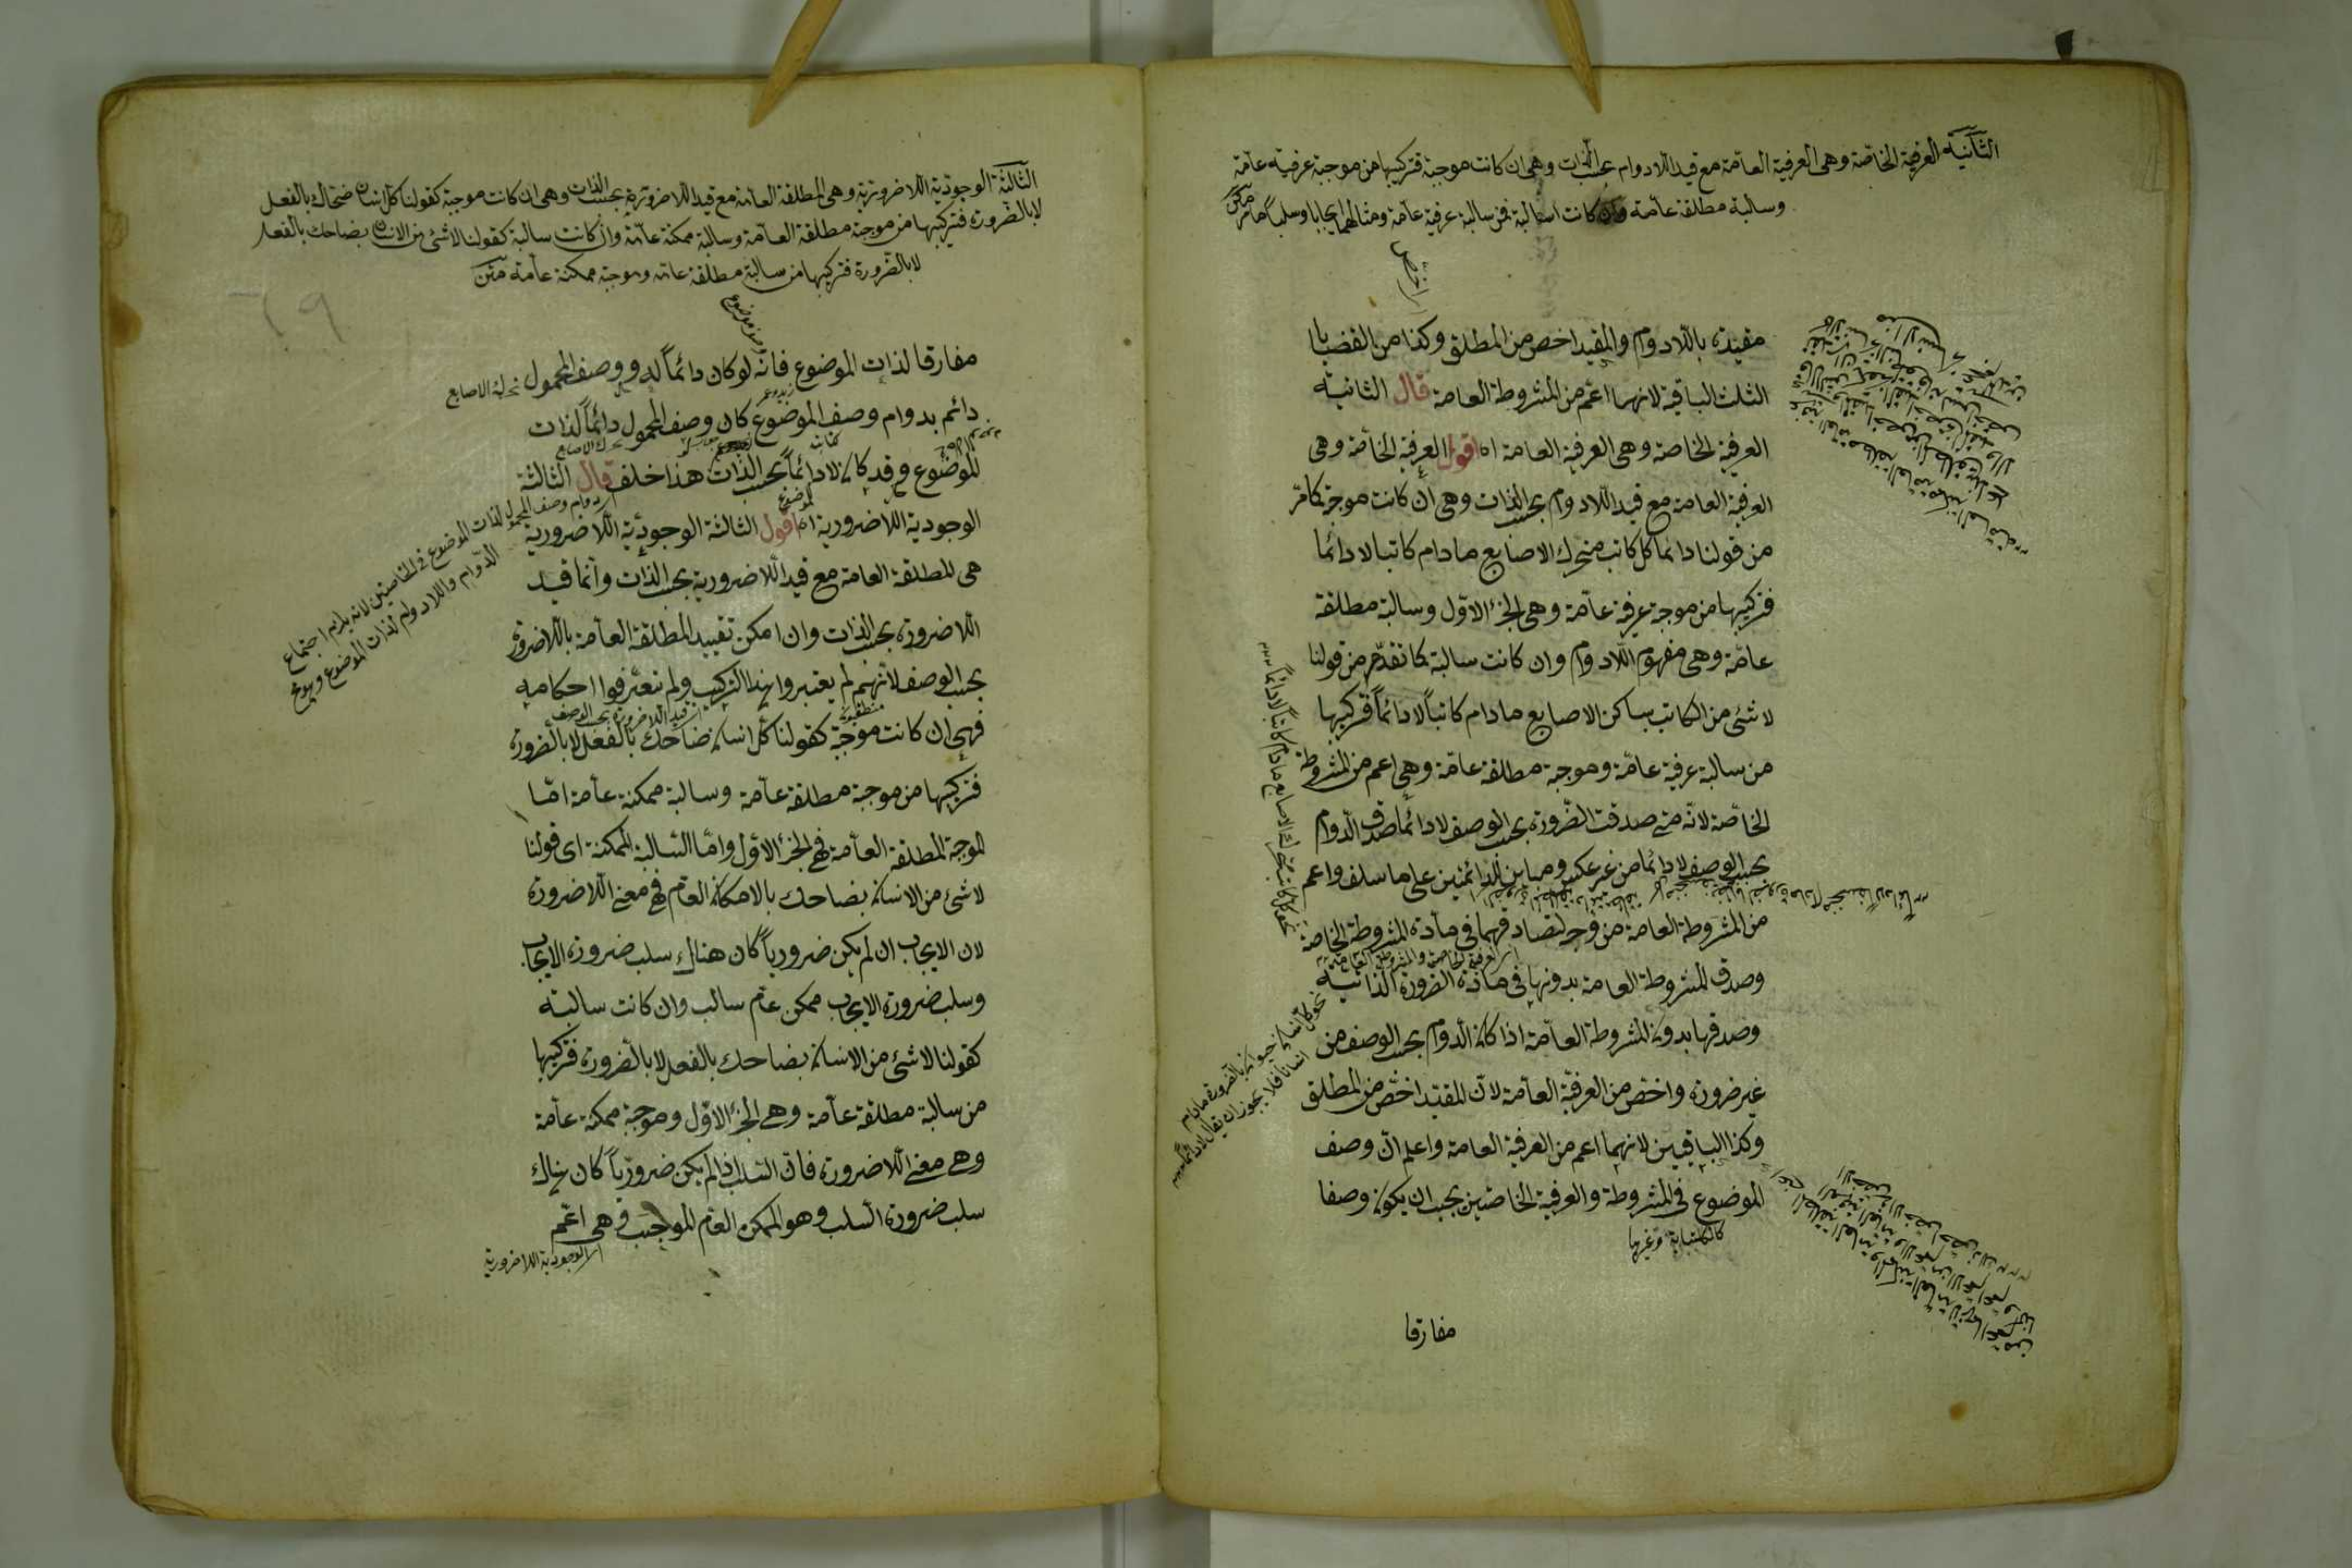 الثانية العرفية الخاصة وهى العرفية العامة مع قيد اللادوام بحسب الذات وهى ان كانت موجبة فتركيبها من موجبة عرفية عامة
وسالبة مطلقة عامة وان كانت سالبة فمن سالبة عرفية عامة ومثالهما ايجابا وسلبا ما مر متن
مقيدة باللادوام والمقيد اخص من المطلق وكذا من القضايا
الثلث الباقية لانها اعم من المشروطة العامة قال الثانية
العرفية الخاصة وهى العرفية العامة اه اقول العرفية الخاصة وهى
العرفية العامة مع قيد اللادوام بحسب الذات وهى ان كانت موجبة كما مر
من قولنا دائما كل كاتب متحرك الاصابع مادام كاتبا لا دائما
فتركيبها من موجبة عرفية عامة وهى الجزء الاول وسالبة مطلقة
عامة وهى مفهوم اللادوام وان كانت سالبة كما تقدم من قولنا
لا شئ من الكاتب بساكن الاصابع مادام كاتبا لا دائما فتركيبها
من سالبة عرفية عامة وموجبة مطلقة عامة وهى اعم من المشروطة
الخاصة لانه متى صدقت الضرورة بحسب الوصف لا دائما صدق الدوام
بحسب الوصف لا دائما من غير عكس ومباين للدائمتين على ما سلف واعم
من المشروطة العامة من وجه لتصادقهما فى مادة المشروطة الخاصة
اى العرفية الخاصة والمشروطة العامة
وصدق المشروطة العامة بدونها فى مادة الضرورة الذاتية
وصدقها بدون المشروطة العامة اذا كان الدوام بحسب الوصف من
غير ضرورة واخص من العرفية العامة لان المقيد اخص من المطلق
وكذا الباقيين لانهما اعم من العرفية العامة واعلم ان وصف
الموضوع فى المشروطة والعرفية الخاصتين يجب ان يكون وصفا
كالكتابة وغيرها
نحو كل انسان حيوان بالضرورة مادام
انسانا فلا يجوز ان يقال لا دائما
مفارقا
الثالثة الوجودية اللاضرورية وهى المطلقة العامة مع قيد اللاضرورية بحسب الذات وهى ان كانت موجبة كقولنا كل انسان ضحاك بالفعل
لا بالضرورة فتركيبها من موجبة مطلقة العامة وسالبة ممكنة عامة وان كانت سالبة كقولنا لا شئ من الانسان بضاحك بالفعل
لا بالضرورة فتركيبها من سالبة مطلقة عامة وموجبة ممكنة عامة متن
٦٩
مفارقا لذات الموضوع فانه لو كان دائما له ووصف المحمول
تحرك الاصابع
دائم بدوام وصف الموضوع كان وصف المحمول دائما لذات
الموضوع وقد كان لا دائما بحسب الذات هذا خلف قال الثالثة
الوجودية اللاضرورية اه اقول الثالثة الوجودية اللاضرورية
اى دوام وصف المحمول لذات الموضوع فى الخاصتين لانه يلزم اجتماع
الدوام واللادوام لذات الموضوع وهو مح
هى المطلقة العامة مع قيد اللاضرورية بحسب الذات وانما قيد
اللاضرورة بحسب الذات وان امكن تقييد المطلقة العامة باللاضرورة
بحسب الوصف لانهم لم يعتبروا هذا التركيب ولم يتعرفوا احكامه
فهى ان كانت موجبة كقولنا كل انسان ضاحك بالفعل لا بالضرورة
فتركيبها من موجبة مطلقة عامة وسالبة ممكنة عامة اما
الموجبة المطلقة العامة فهى الجزء الاول واما السالبة الممكنة اى قولنا
لا شئ من الانسان بضاحك بالامكان العام فهى معنى اللاضرورة
لان الايجاب ان لم يكن ضروريا كان هناك سلب ضرورة الايجاب
وسلب ضرورة الايجاب ممكن عام سالب وان كانت سالبة
كقولنا لا شئ من الانسان بضاحك بالفعل لا بالضرورة فتركيبها
من سالبة مطلقة عامة وهى الجزء الاول وموجبة ممكنة عامة
وهى معنى اللاضرورة فان السلب اذا لم يكن ضروريا كان هناك
سلب ضرورة السلب وهو الممكن العام الموجب وهى اعم
اى الوجودية اللاضرورية